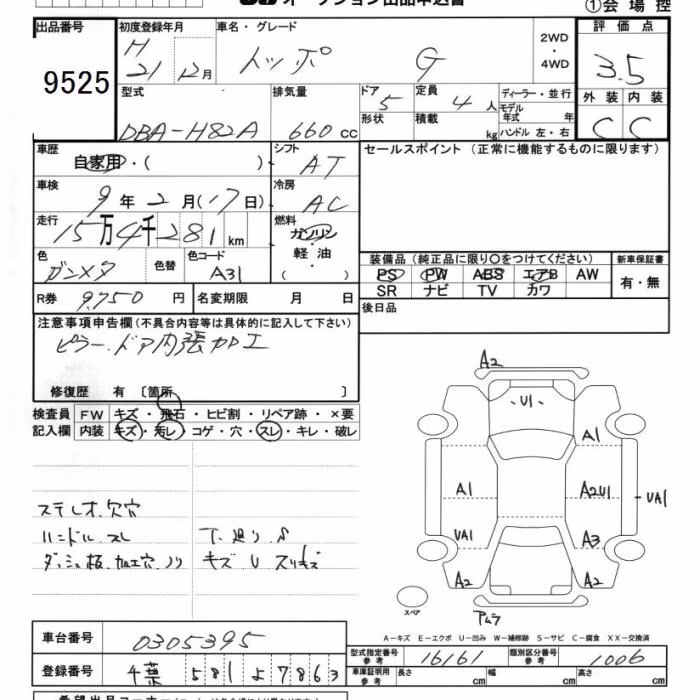 オークション出品申込書
①会場控
出品番号 9525
初度登録年月 H 21 12月
車名・グレード トッポ G
2WD・4WD
評価点 3.5
外装 C 内装 C
型式 DBA-H82A
排気量 660 cc
ドア 5 形状
定員 4人 積載 kg
ディーラー・並行
モデル年式 年
ハンドル 左・右
車歴 自家用・( )
シフト AT
セールスポイント(正常に機能するものに限ります)
車検 9年2月(17日)
冷房 AC
走行 15万4千281km
燃料 ガソリン・軽油・( )
色 ガンメタ 色替 色コード A31
装備品(純正品に限り○をつけてください)
PS PW ABS エアB AW
SR ナビ TV カワ
新車保証書 有・無
R券 9,750円 名変期限 月 日
後日品
注意事項申告欄(不具合内容等は具体的に記入して下さい)
ピラー.ドア内張加工
修復歴 有 〔箇所 〕
検査員記入欄
FW キズ・飛石・ヒビ割・リペア跡・×要
内装 キズ・汚レ・コゲ・穴・スレ・キレ・破レ
ステレオ.欠穴
ハンドル スレ
ダッシュ板.加工穴.ノリ
下.廻り.S
キズ U スリキズ
A2
U1
A1
A1
A2U1
UA1
UA1
A3
A2
A2
スペア
アムラ
A-キズ E-エクボ U-凹み W-補修跡 S-サビ C-腐食 XX-交換済
車台番号 0305395
登録番号 千葉 581 よ 7863
型式指定番号参考 16161
類別区分番号参考 1006
車庫証明用参考 長さ cm 幅 cm 高さ cm